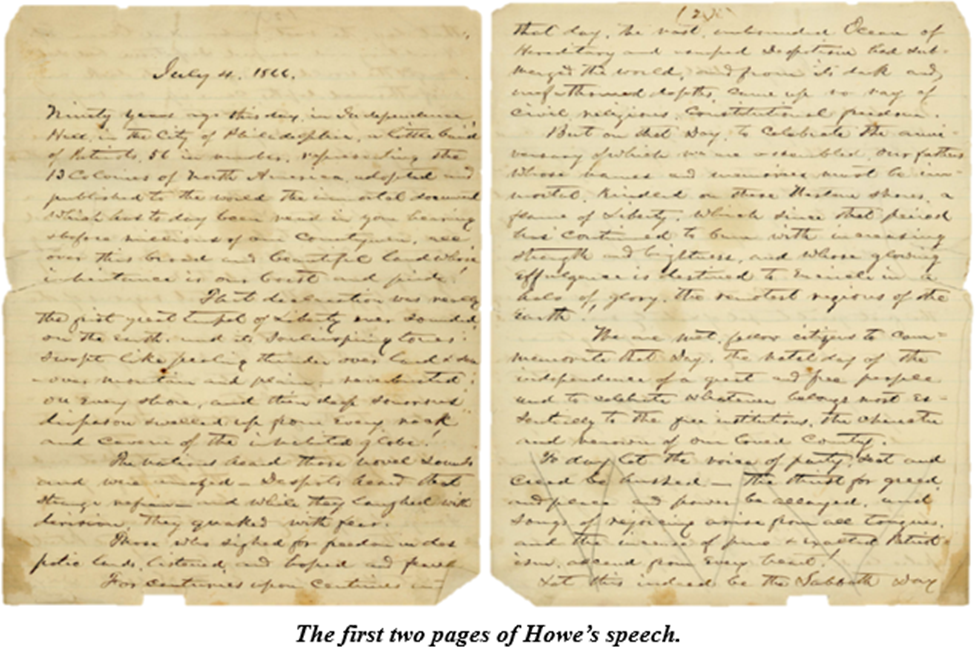 July 4. 1866.
Ninety years ago this day, in Independence
Hall, in the City of Philadelphia, a little band
of Patriots, 56 in number, representing the
13 Colonies of North America, adopted and
published to the world the immortal document
which has to day been read in your hearing
& before millions of our Countrymen, all
over this broad and beautiful land whose
inheritance is our boast and pride!
That declaration was really
the first great trumpet of Liberty ever sounded
on the earth, and its tones
swept like pealing thunder over land & sea
over mountain and plain, reverberated
on every shore, and then deep sonorous
diapason swelled up from every nook
and cavern of the inhabited globe!
The nations heard those novel sounds
and were amazed – Despots heard that
strange refrain – and while they laughed with
derision, they quaked with fear.
Those who sighed for freedom in des
potic lands, listened, and hoped and
For centuries upon centuries
(2)
that day, the vast, unbounded Ocean of
Hereditary and usurped Despotism had sub-
merged the world, and from its dark and
unfathomed depths, came up no ray of
civil, religious, Constitutional freedom.
But on that Day, to celebrate the anni-
versary of which we are assembled, our fathers
whose names and memories must be im-
mortal, kindled on these Western shores, a
flame of Liberty, which since that period
has continued to burn with increasing
strength and brightness, and whose glowing
effulgence is destined to encircle in a
halo of glory, the remotest regions of the
Earth!
We are met, fellow citizens to com-
memorate that Day, the natal day of the
independence of a great and free people
and to celebrate whatever belongs most es-
sentially to the free institutions, the character
and renown of our loved County.
To day let the voice of party, sect and
Creed be hushed – the thirst for greed
and place and power be allayed, and
songs of rejoicing arise from all tongues,
and the incense of pure & exalted Patriot-
ism, ascend from every heart!
Let this indeed be the Sabbath Day
The first two pages of Howe's speech.